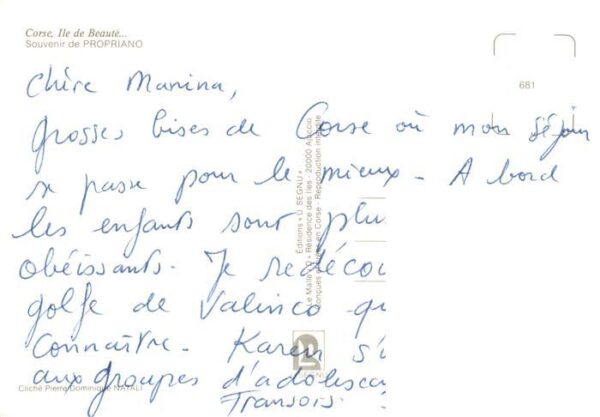 Corse, Ile de Beauté...
Souvenir de PROPRIANO
681
Chère Manina,
grosses bises de Corse où mon séjour
se passe pour le mieux - A bord
les enfants sont plu
obéissants. Je redécou
golfe de Valinco qu
connaître. Karen s'i
aux groupes d'adolesca
Transois.
Editions « U SEGNU »
Le Maltèse - Résidence des Iles - 20000 Ajaccio
en Corse - Reproduction interdite
Cliché Pierre Dominique NATALI